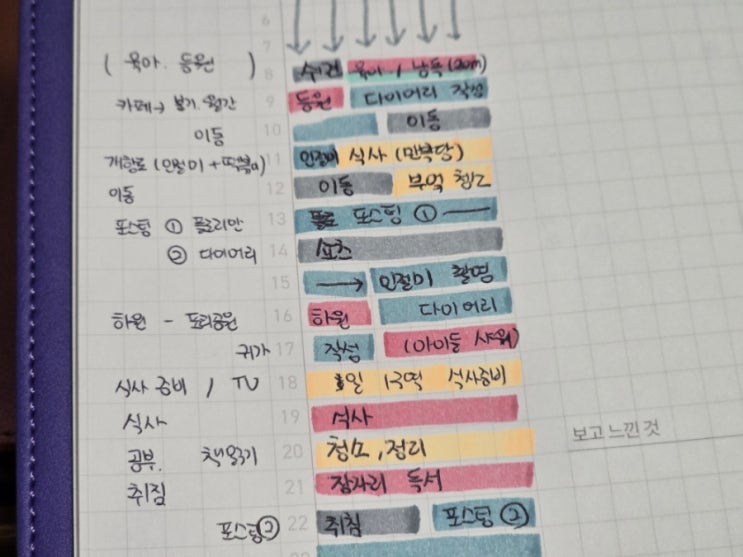 6
7
( 육아. 등원 ) 8 수건 육아 / 낭독 (20m)
카페→ 보기. 월간 9 등원 다이어리 작성
이동 10 이동
개항로 (인절미 + 떡볶이) 11 인절미 식사 (만복당)
이동 12 이동 부엌 청소
포스팅 ① 플로리안 13 포스팅 ①
② 다이어리 14 쇼츠
15 → 인절미 촬영
하원 - 도리공원 16 하원 다이어리
귀가 17 작성 (아이들 샤워)
식사 준비 / TV 18 일 식사준비
식사 19 식사
공부. 책읽기 20 청소, 정리
취침 21 잠자리 독서
포스팅② 22 취침 포스팅②
보고 느낀 것